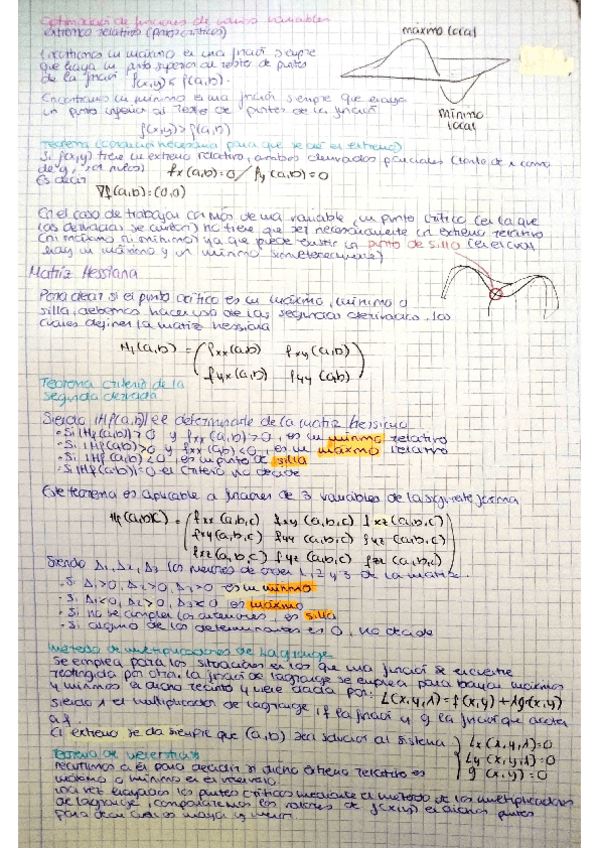 Optimización de funciones de varios variables
extremos relativos (puntos críticos)
máximo local
Encontramos un máximo en una función siempre
que haya un punto superior al resto de puntos
de la función f(x,y) < f(a,b).
Encontramos un mínimo en una función siempre que haya
un punto inferior al resto de puntos de la función
mínimo local
f(x,y) > f(a,b)
Teorema (condición necesaria para que se dé un extremo)
Si f(x,y) tiene un extremo relativo, ambas derivadas parciales (tanto de x como
de y, son nulas) fx(a,b)=0 / fy(a,b)=0
Es decir
∇f(a,b)=(0,0)
En el caso de trabajar con más de una variable, un punto crítico (en la que
las derivadas se anulan) no tiene que ser necesariamente un extremo relativo
(ni máximo ni mínimo) ya que puede existir un punto de silla (en el cual
hay un máximo y un mínimo simultáneamente)
Matriz Hessiana
Para decir si el punto crítico es un máximo, mínimo o
silla, debemos hacer uso de las segundas derivadas, las
cuales definen la matriz hessiana
Hf(a,b) = (fxx(a,b) fxy(a,b)
fyx(a,b) fyy(a,b))
Teorema criterio de la
segunda derivada
Siendo |Hf(a,b)| el determinante de la matriz hessiana
• Si |Hf(a,b)|>0 y fxx(a,b)>0, es un mínimo relativo
• Si |Hf(a,b)|>0 y fxx(a,b)<0, es un máximo relativo
• Si |Hf(a,b)|<0, es un punto de silla
• Si |Hf(a,b)|=0 el criterio no decide
Este teorema es aplicable a funciones de 3 variables de la siguiente forma
Hf(a,b,c) = (fxx(a,b,c) fxy(a,b,c) fxz(a,b,c)
fxy(a,b,c) fyy(a,b,c) fyz(a,b,c)
fxz(a,b,c) fyz(a,b,c) fzz(a,b,c))
Siendo Δ1, Δ2, Δ3 los menores de orden 1, 2 y 3 de la matriz...
• Si Δ1>0, Δ2>0, Δ3>0 es un mínimo
• Si Δ1<0, Δ2>0, Δ3<0 es máximo
• Si no se cumplen los anteriores, es silla
• Si alguno de los determinantes es 0, no decide
Método de multiplicadores de Lagrange
Se emplea para las situaciones en las que una función se encuentre
restringida por otra. La función de lagrange se emplea para hallar máximos
y mínimos en dicho recinto y viene dada por: L(x,y,λ)=f(x,y)+λg(x,y)
siendo λ el multiplicador de lagrange, f la función y g la función que acota
a f.
El extremo se da siempre que (a,b) sea solución al sistema
Lx(x,y,λ)=0
Ly(x,y,λ)=0
g(x,y)=0
Teorema de Weierstrass
recurrimos a él para decidir si dicho extremo relativo es
máximo o mínimo en el intervalo.
una vez hallados los puntos críticos mediante el método de los multiplicadores
de lagrange, comparamos los valores de f(x,y) en dichos puntos
para decir cual es mayor y menor.